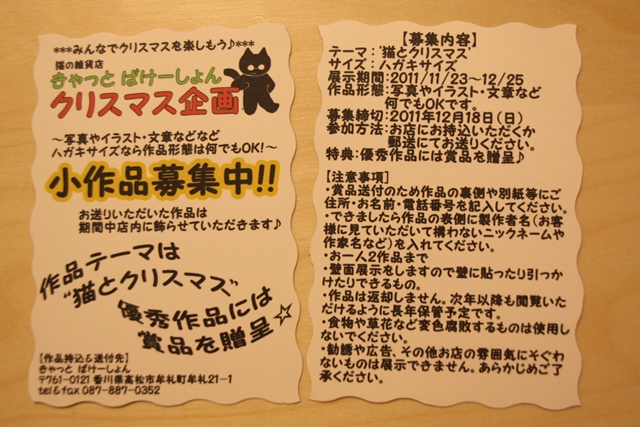 ***みんなでクリスマスを楽しもう♪***
猫の雑貨店
きゃっと ばけーしょん
クリスマス企画
～写真やイラスト・文章などなど
ハガキサイズなら作品形態は何でもOK!～
小作品募集中!!
お送りいただいた作品は
期間中店内に飾らせていただきます♪
作品テーマは
“猫とクリスマス”
優秀作品には
賞品を贈呈☆
【作品持込&送付先】
きゃっと ばけーしょん
〒761-0121 香川県高松市牟礼町牟礼21-1
tel&fax 087-887-0352
【募集内容】
テーマ：‘猫とクリスマス’
サイズ：ハガキサイズ
展示期間：2011/11/23～12/25
作品形態：写真やイラスト・文章など
何でもOKです。
募集締切：2011年12月18日(日)
参加方法：お店にお持込いただくか
郵送にてお送りください。
特典：優秀作品には賞品を贈呈♪
【注意事項】
・賞品送付のため作品の裏側や別紙等にご
住所・お名前・電話番号を記入してください。
・できましたら作品の表側に製作者名(お客
様に見ていただいて構わないニックネームや
作家名など)を入れてください。
・お一人2作品まで
・壁面展示をしますので壁に貼ったり引っか
けたりできるもの。
・作品は返却しません。次年以降も閲覧いた
だけるように長年保管予定です。
・食物や草花など変色腐敗するものは使用し
ないでください。
・勧誘や広告、その他お店の雰囲気にそぐわ
ないものは展示できません。あらかじめご了
承ください。